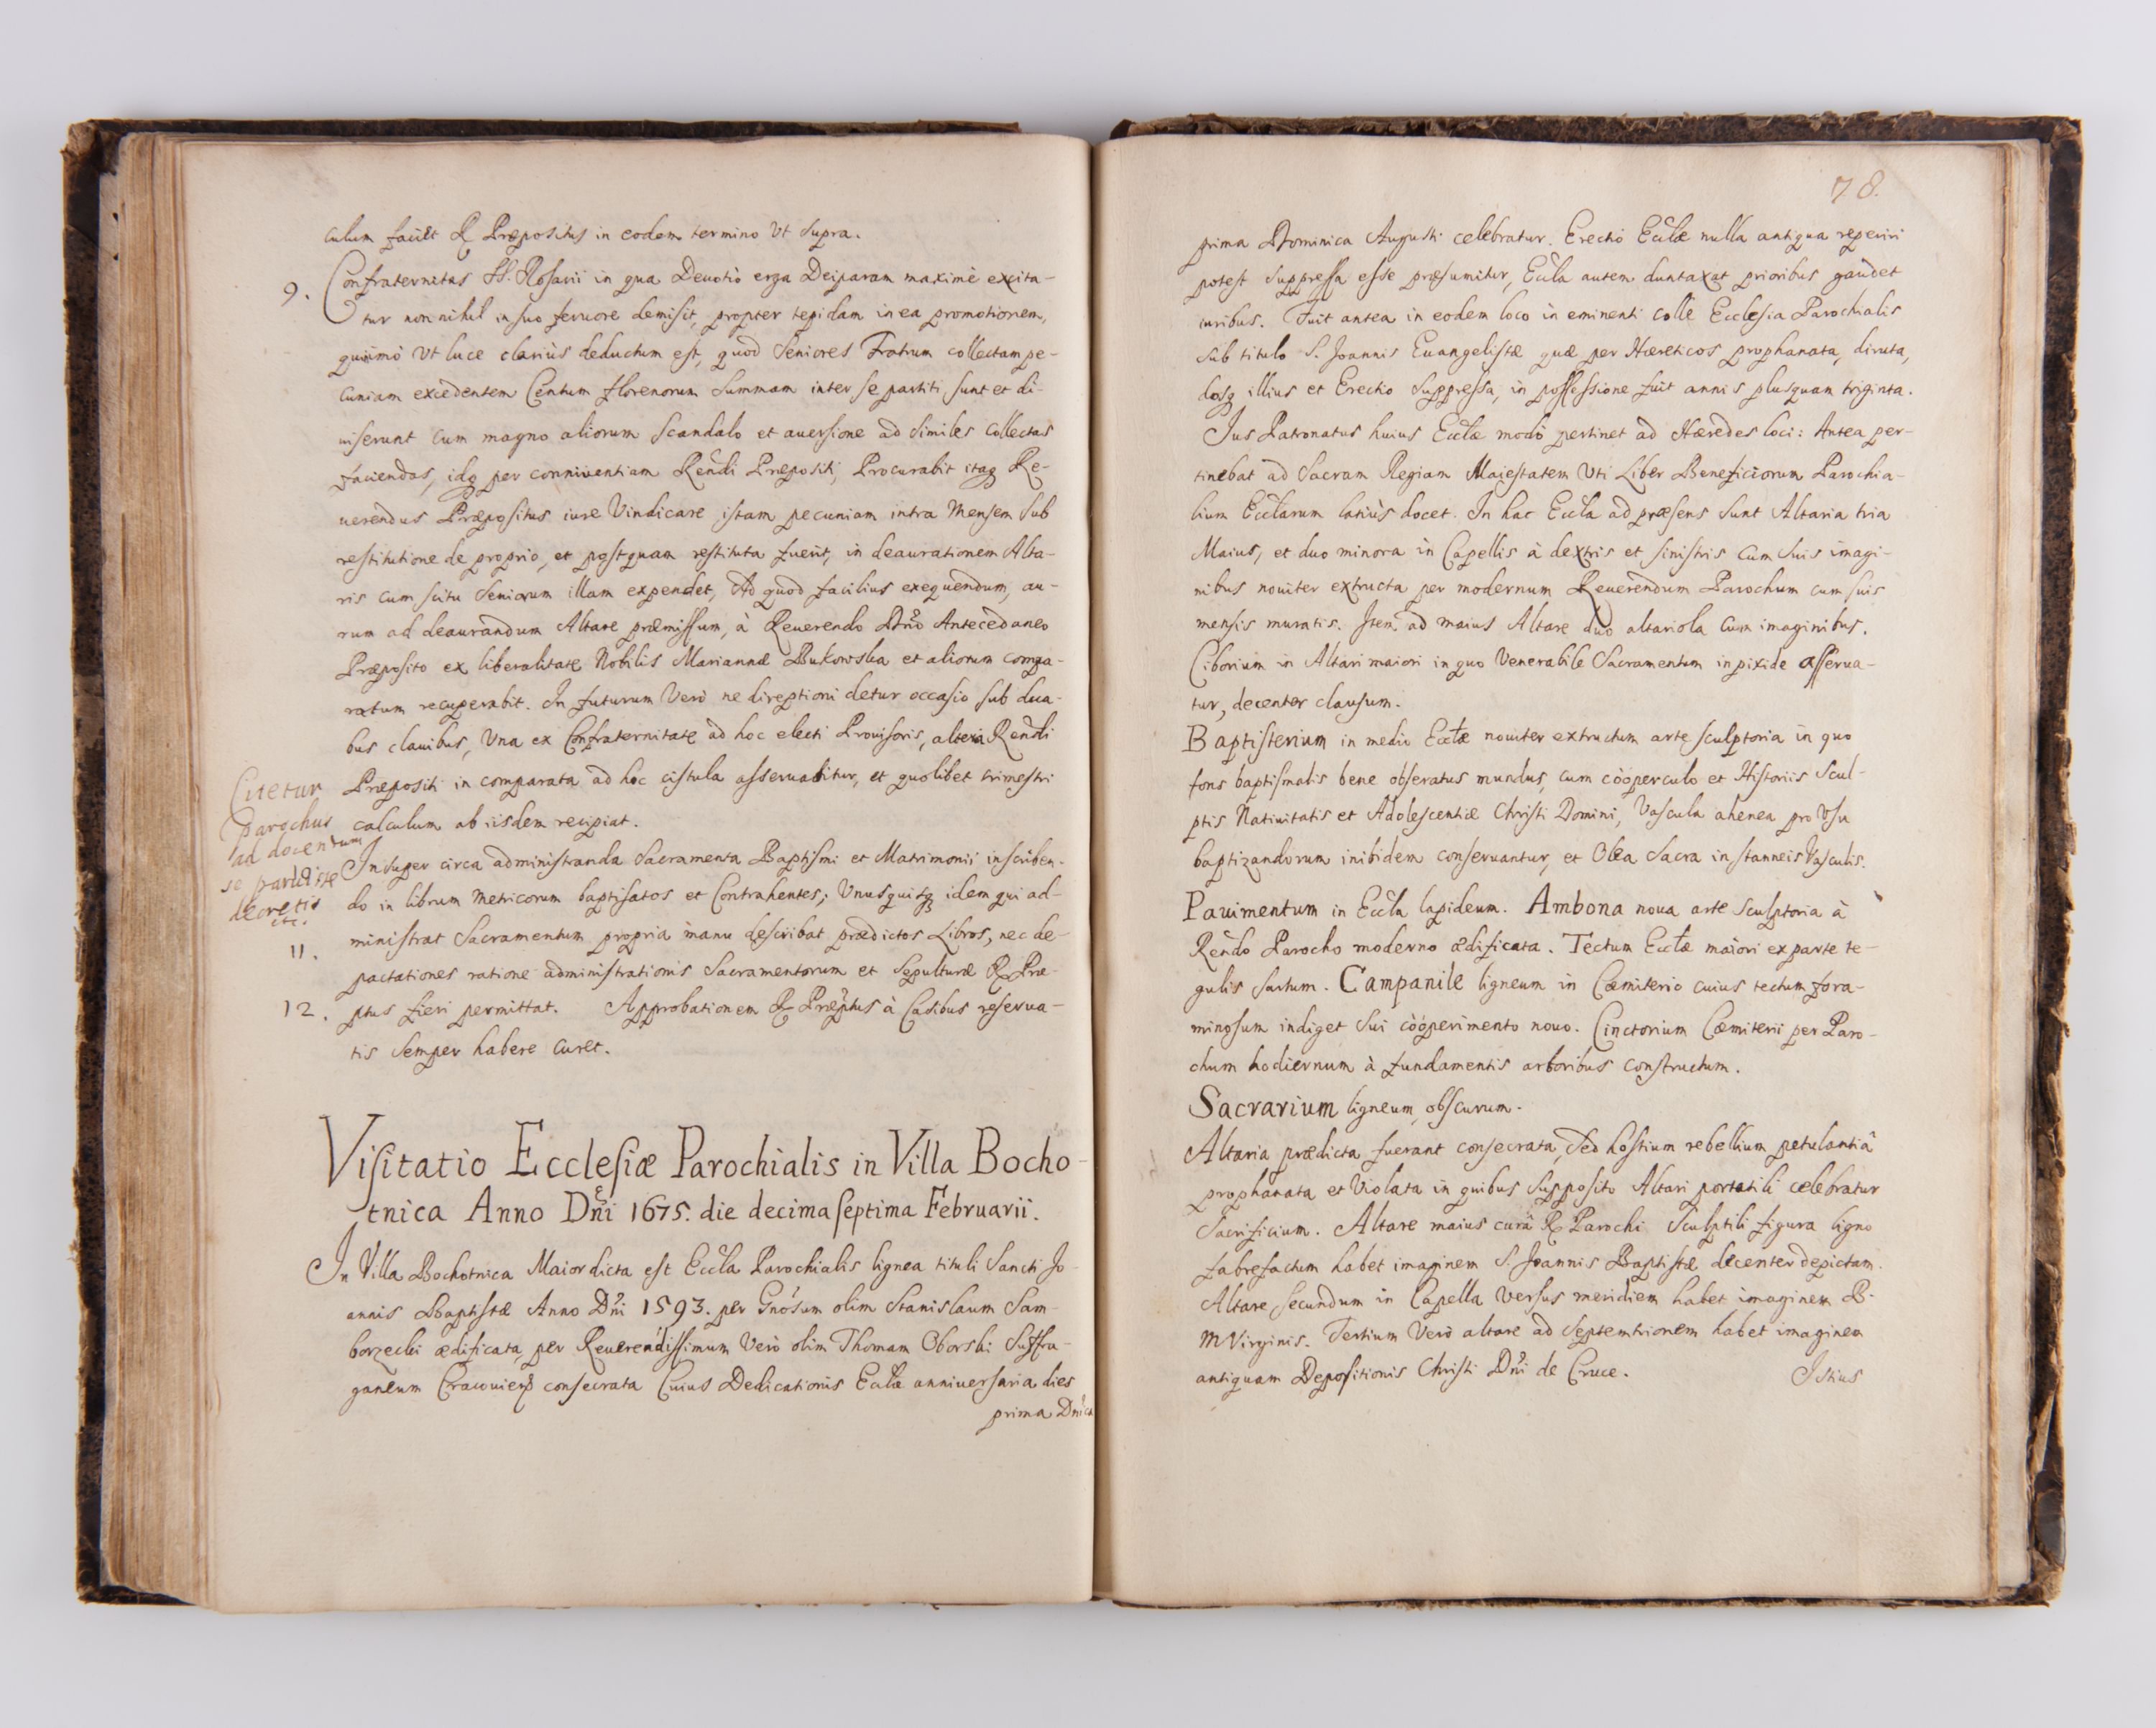 culum faciet R Præpositus in eodem termino Vt supra.
9. Confraternitas SS. Rosarii in qua Deuotio erga Deiparam maximè excita-
tur non nihil in suo feruore demisit, propter tepidam in ea promotionem,
quinimò Vt luce clariùs deductum est, quod Seniores Fratrum collectam pe-
cuniam excedentem Centum florenorum Summam inter se partiti sunt et di-
uiserunt cum magno aliorum Scandalo et auersione ad similes Collectas
faciendas, idq per conniuentiam Rendi Præpositi, Procurabit itaq Re-
uerendus Præpositus iure Vindicare istam pecuniam intra Mensem sub
restitutione de proprio, et postquam restituta fuerit, in deaurationem Alta-
ris cum scitu Seniorum illam expendet, Ad quod facilius exequendum, au-
rum ad deaurandum Altare præmissum, à Reuerendo Dño Antecedaneo
Præposito ex liberalitate Nobilis Mariannæ Bukowska et aliorum compa-
ratum recuperabit. In futurum Verò ne direptioni detur occasio sub dua-
bus clauibus, Vna ex Confraternitate ad hoc electi Prouisoris, altera Rendi
Præpositi in comparata ad hoc cistula asseruabitur, et quolibet trimestri
calculum ab iisdem recipiat.
Citetur
Parochus
ad docendum
se paruisse
decretis
etc.
Insuper circa administranda Sacramenta Baptismi et Matrimonii inscriben-
do in librum Metricorum baptisatos et Contrahentes; Vnusquisq idem qui ad-
11. ministrat Sacramentum propria manu describat prædictos Libros, nec de-
pactationes ratione administrationis Sacramentorum et Sepulturæ R Præ-
12. ptus fieri permittat. Approbationem R Præptus à Casibus reserua-
tis semper habere curet.
Visitatio Ecclesiæ Parochialis in Villa Bocho-
tnica Anno Dñi 1675. die decima septima Februarii.
In Villa Bochotnica Maior dicta est Eccla Parochialis lignea tituli Sancti Jo-
annis Baptistæ Anno Dñi 1593. per Gnosum olim Stanislaum Sam-
borzecki ædificata, per Reuerendissimum Verò olim Thomam Oborski Suffra-
ganeum Cracouien consecrata Cuius Dedicationis Ecclæ anniuersaria dies
prima Dnica
78.
prima Dominica Augusti celebratur. Erectio Ecclæ nulla antiqua reperiri
potest suppressa esse præsumitur, Eccla autem duntaxat prioribus gaudet
iuribus. Fuit antea in eodem loco in eminenti colle Ecclesia Parochialis
sub titulo S. Joannis Euangelistæ quæ per Hæreticos prophanata, diruta,
dosq illius et Erectio suppressa, in possessione fuit annis plusquam triginta.
Jus Patronatus huius Ecclæ modò pertinet ad Hæredes loci: Antea per-
tinebat ad Sacram Regiam Maiestatem Vti Liber Beneficiorum Parochia-
lium Ecclarum latiùs docet. In hac Eccla ad præsens sunt Altaria tria
Maius, et duo minora in Capellis à dextris et sinistris cum suis imagi-
nibus nouiter extructa per modernum Reuerendum Parochum cum suis
mensis muratis. Item ad maius Altare duo altariola cum imaginibus.
Ciborium in Altari maiori in quo Venerabile Sacramentum in pixide asserua-
tur, decenter clausum.
Baptisterium in medio Ecclæ nouiter extructum arte sculptoria in quo
fons baptismalis bene obseratus mundus, cum coòperculo et Historiis Scul-
ptis Natiuitatis et Adolescentiæ Christi Domini, Vascula ahenea pro Vsu
baptizandorum inibidem conseruantur, et Olea Sacra in stanneis Vasculis.
Pauimentum in Eccla lapideum. Ambona noua arte Sculptoria à
Rendo Parocho moderno ædificata. Tectum Ecclæ maiori ex parte te-
gulis sartum. Campanile ligneum in Cæmiterio cuius tectum fora-
minosum indiget sui coòperimento nouo. Cinctorium Cæmiterii per Paro-
chum hodiernum à fundamentis arboribus constructum.
Sacrarium ligneum obscurum.
Altaria prædicta fuerant consecrata, sed hostium rebellium petulantiâ
prophanata et Violata in quibus supposito Altari portatili celebratur
Sacrificium. Altare maius curâ R Parochi Sculptili figura ligno
fabrefactum habet imaginem S. Joannis Baptistæ decenter depictam.
Altare secundum in Capella Versus meridiem habet imaginem B.
M Virginis. Tertium Verò altare ad Septemtrionem habet imaginem
antiquam Depositionis Christi Dñi de Cruce.
Istius